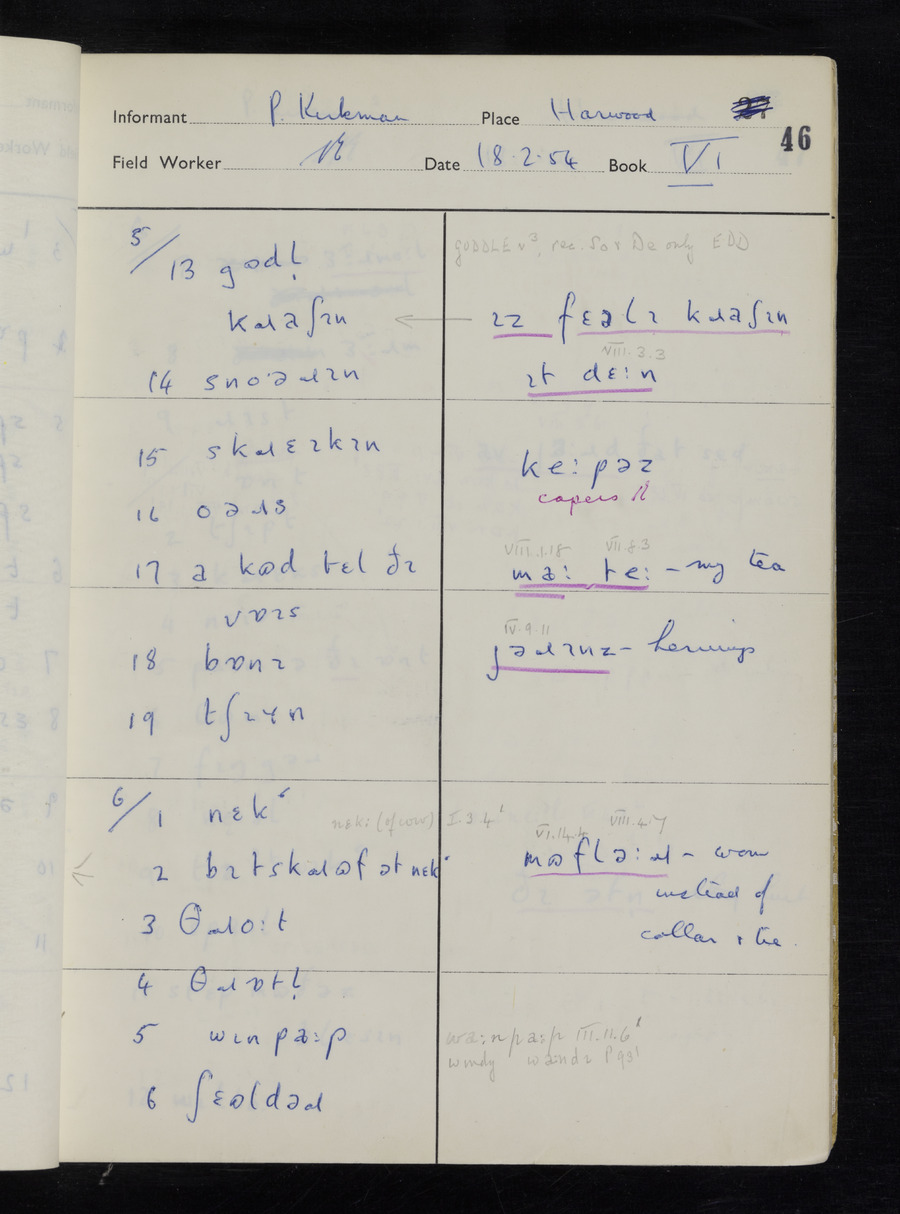 Informant P. Kirkman Place Harwood
46
Field Worker Date 18·2·54 Book VI
5/13 gɒdl̩
GODDLE v³, rec. So & De only EDD
kɹaʃɪn ← ɪz fɛəlɪ kɹaʃɪn
VIII.3.3
14 snoˑəɹɪn ɪt dɛːn
15 skɹɛɪkɪn keːpəz
capers
16 oəɹs
VIII.1.18 VII.8.3
17 a kɒd tɛl ðɪ maː teː – my tea
vɒɪs
IV.9.11
18 bɒnɪ jəɹɪnz – herrings
19 tʃɪɥn
6/1 nɛk
nɛkː (of cow) I.3.4
VI.14.4 VIII.4.7
2 bɪtskɹɒf ət nɛk mɒfləːɹ – worn
instead of
3 θɹoːt collar & tie.
4 θɹɒtl̩
5 wɪnpaːp waːnpaːp III.11.6
windy
6 ʃɛɒldəɹ